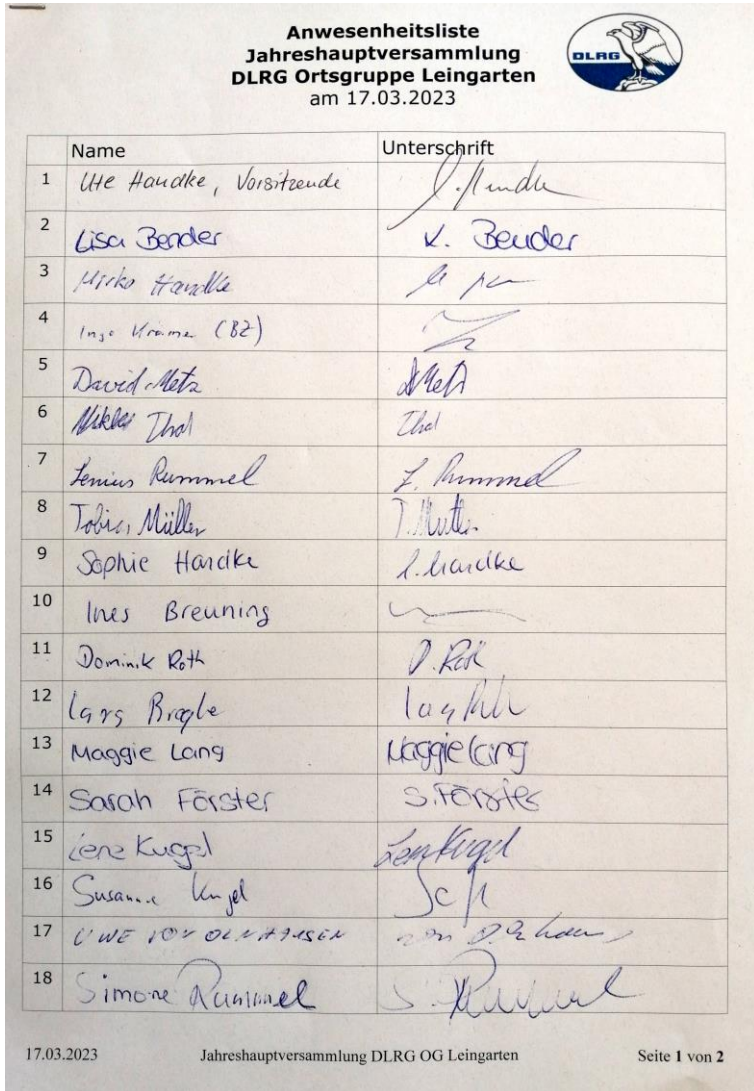 Anwesenheitsliste
Jahreshauptversammlung
DLRG Ortsgruppe Leingarten
am 17.03.2023
DLRG
Name Unterschrift
1 Ute Handke, Vorsitzende
2 Lisa Bender L. Bender
3 Mirko Handke
4 Ingo Krämer (BZ)
5 David Metz DMetz
6 Niklas Thal Thal
7 Rummel Rummel
8 Tobias Müller T. Müller
9 Sophie Handke S. Handke
10 Ines Breuning
11 Dominik Roth D. Roth
12 Lars
13 Maggie Lang Maggie Lang
14 Sarah Förster S. Förster
15 Lena Kugel Lena Kugel
16 Susanne Kugel
17 UWE VON OLNHAUSEN
18 Simone Rummel S. Rummel
17.03.2023 Jahreshauptversammlung DLRG OG Leingarten Seite 1 von 2